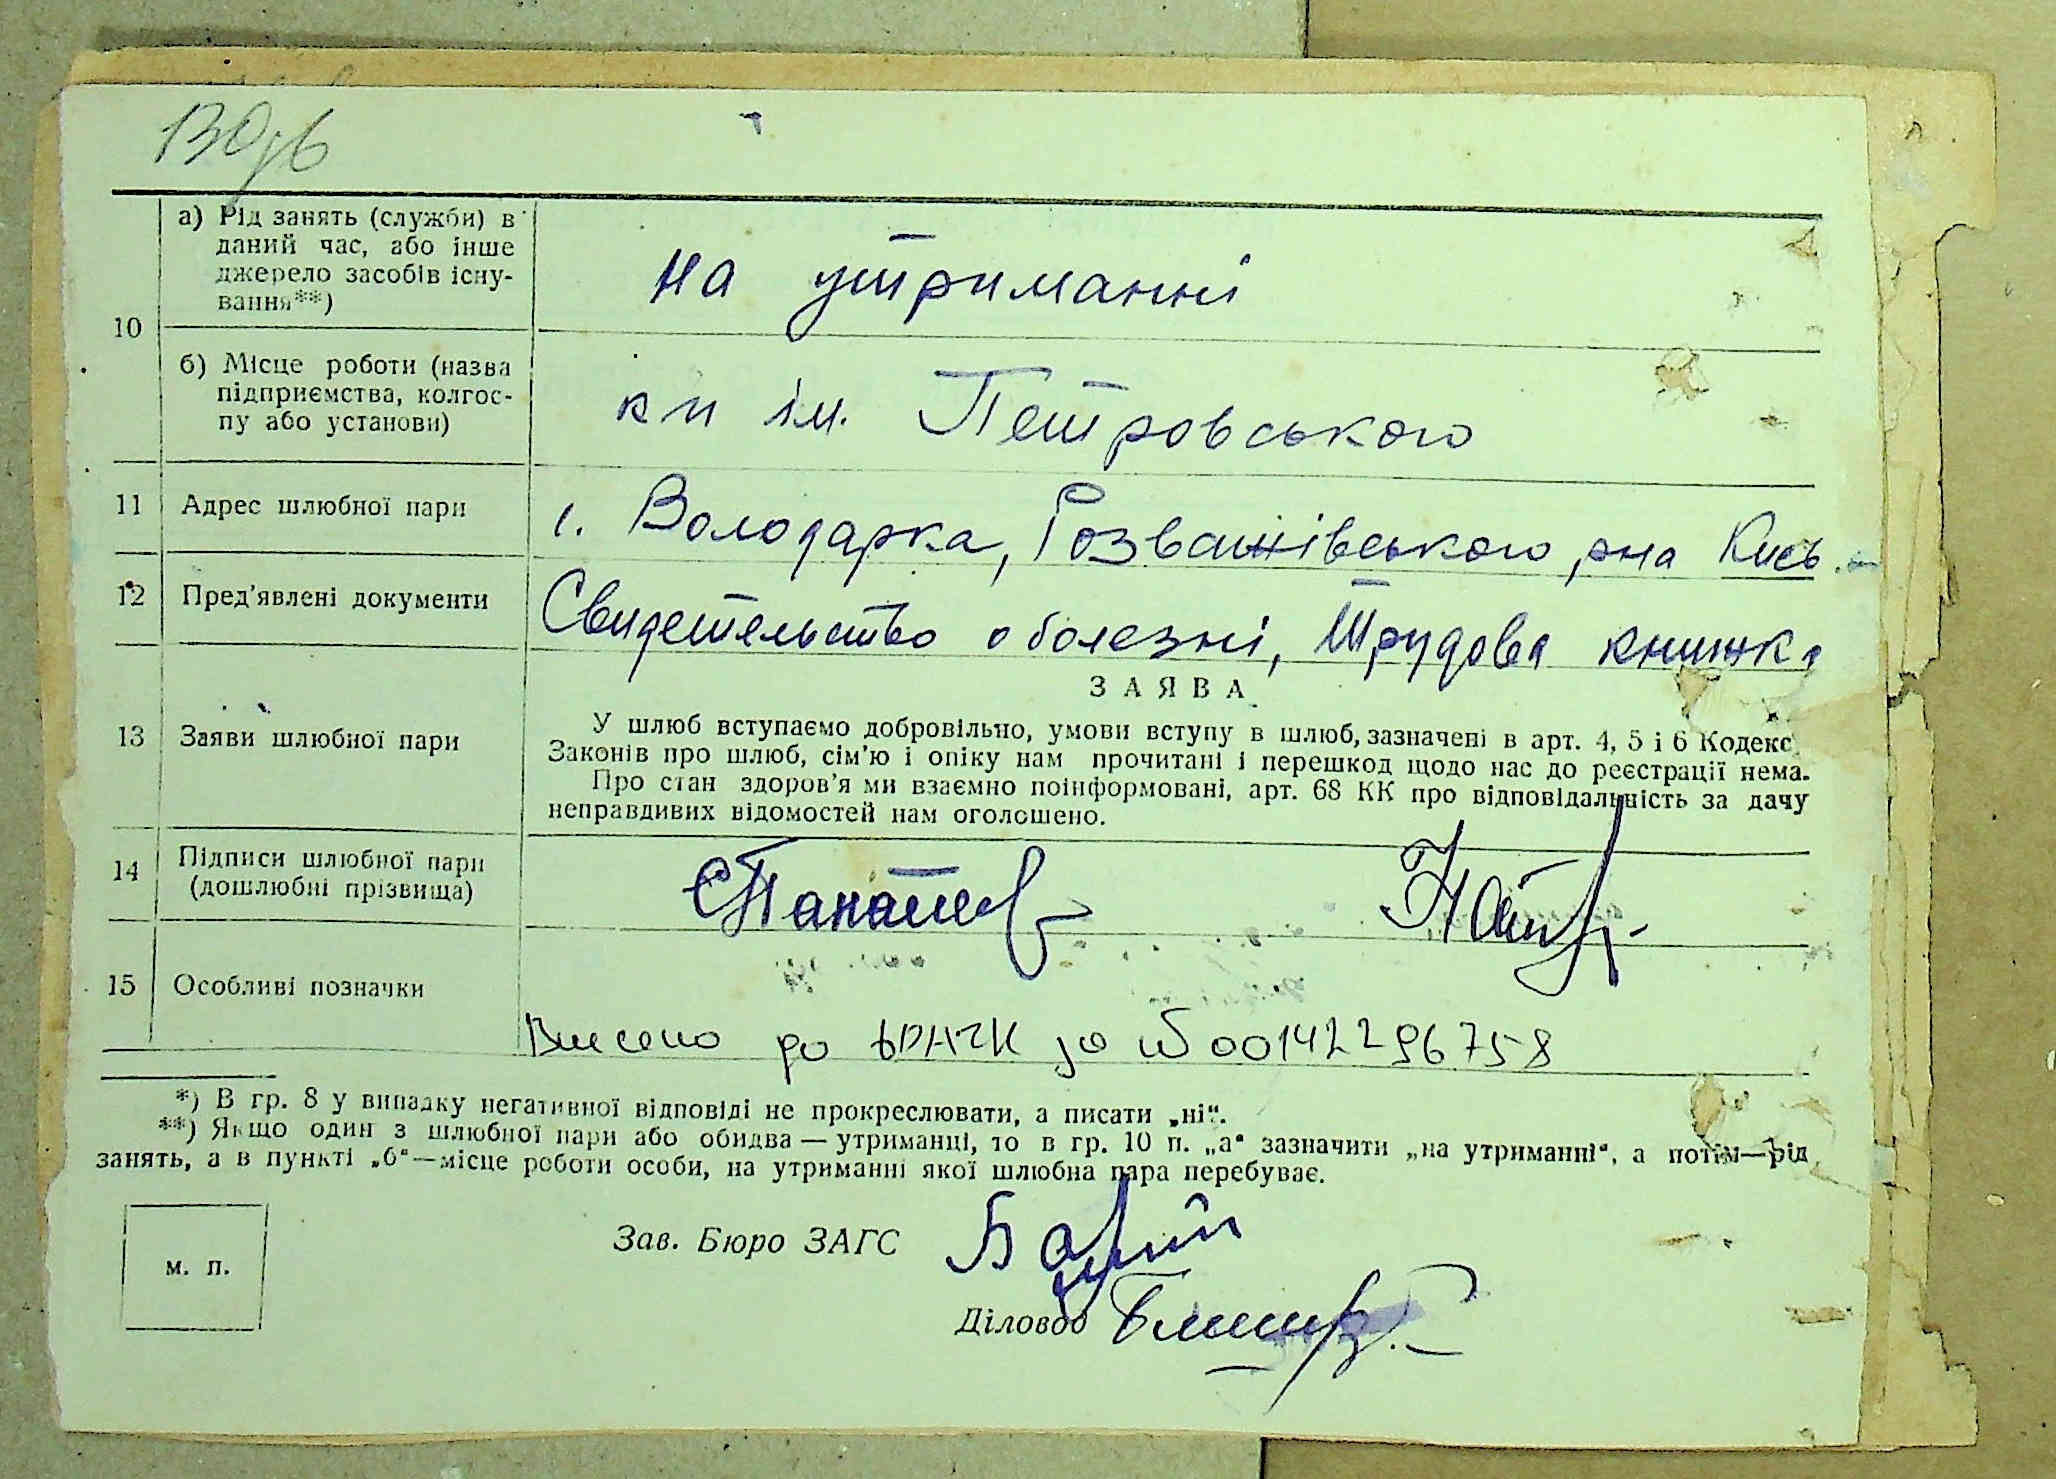 10
а) Рід занять (служби) в
даний час, або інше
джерело засобів існу-
вання**)
на утриманні
б) Місце роботи (назва
підприємства, колгос-
пу або установи)
кп ім. Петровського
11 Адрес шлюбної пари
с. Володарка, Розважівського рна Київ.
12 Пред'явлені документи
Свидетельство о болезні, трудова книжка
ЗАЯВА
13 Заяви шлюбної пари
У шлюб вступаємо добровільно, умови вступу в шлюб, зазначені в арт. 4, 5 і 6 Кодекс
Законів про шлюб, сім'ю і опіку нам прочитані і перешкод щодо нас до реєстрації нема.
Про стан здоров'я ми взаємно поінформовані, арт. 68 КК про відповідальність за дачу
неправдивих відомостей нам оголошено.
14 Підписи шлюбної пари
(дошлюбні прізвища)
15 Особливі позначки
Внесено до ДРАЦС за № 00142296758
*) В гр. 8 у випадку негативної відповіді не прокреслювати, а писати „ні“.
**) Якщо один з шлюбної пари або обидва — утриманці, то в гр. 10 п. „а“ зазначити „на утриманні“, а потім—рід
занять, а в пункті „б“—місце роботи особи, на утриманні якої шлюбна пара перебуває.
м. п.
Зав. Бюро ЗАГС
Діловод